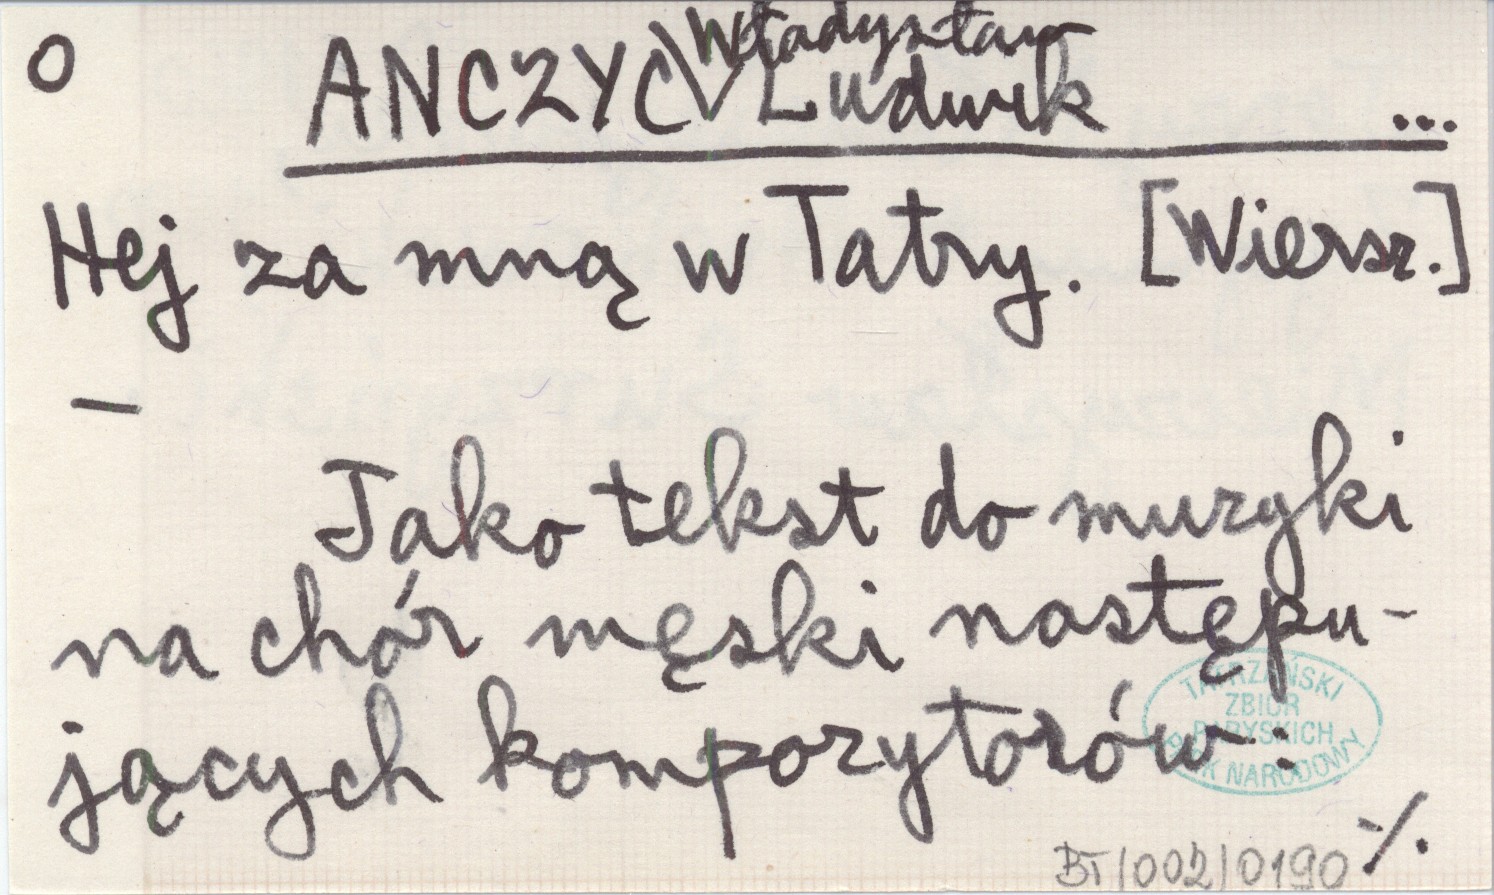 O
ANCZYC Władysław
Ludwik ...
Hej za mną w Tatry. [Wiersz.]
—
Jako tekst do muzyki
na chór męski następu-
jących kompozytorów:
TATRZAŃSKI
ZBIÓR
PARYSKICH
PARK NARODOWY
./.
BT/002/0190